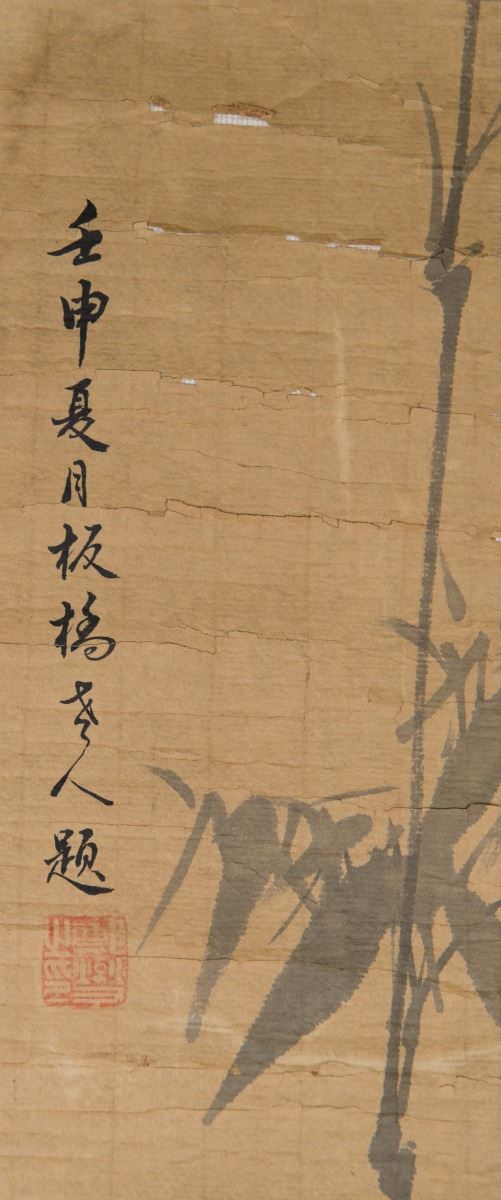 壬申夏月板橋老人題